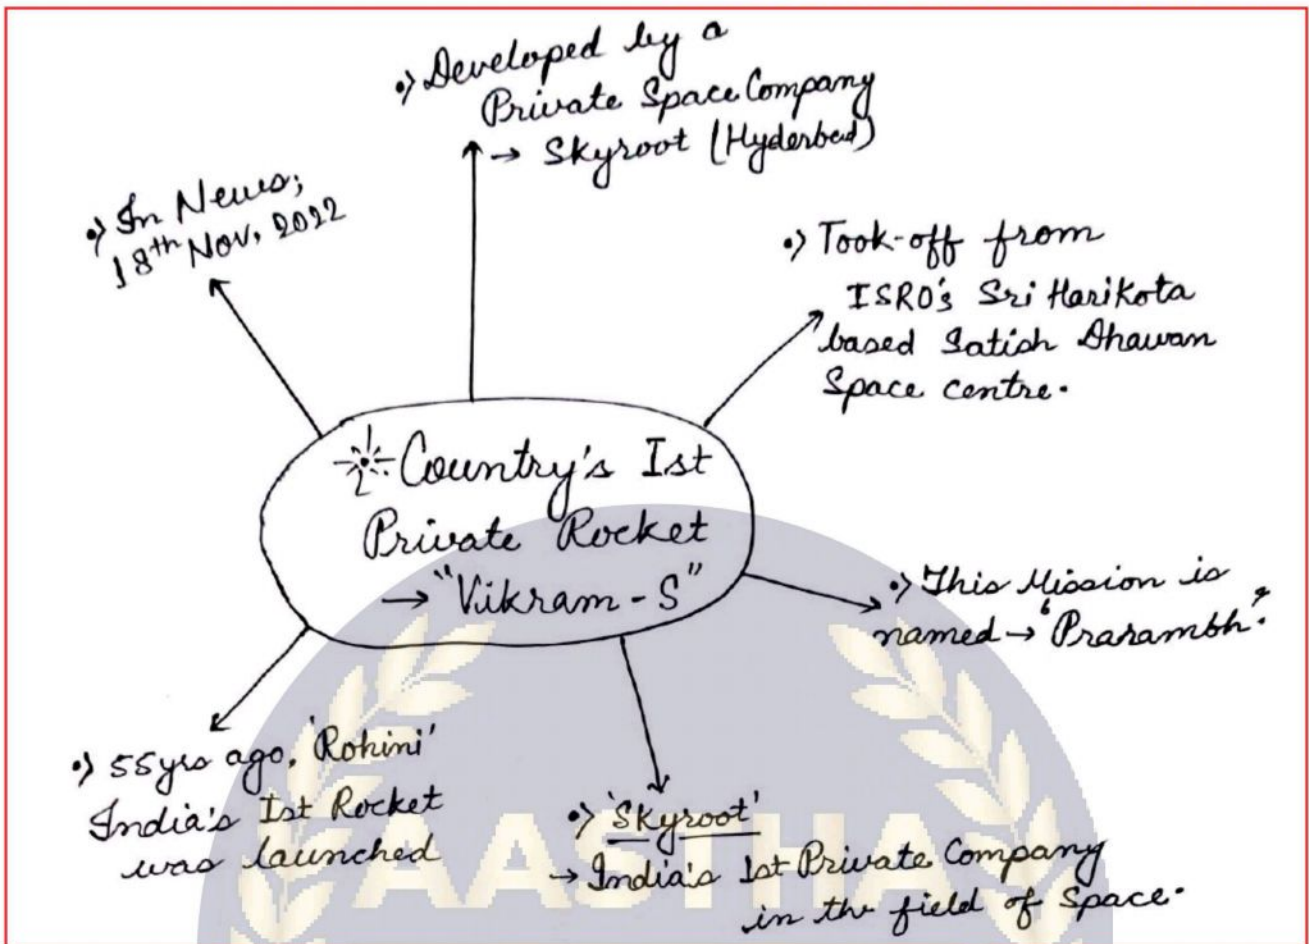 •) Developed by a
Private Space Company
→ Skyroot (Hyderbad)
•) In News;
18th Nov, 2022
•) Took-off from
ISRO's Sri Harikota
based Satish Dhawan
Space centre.
☼ Country's Ist
Private Rocket
→ "Vikram-S"
•) This Mission is
named → 'Prarambh'.
•) 55yrs ago, 'Rohini'
India's Ist Rocket
was launched
•) 'Skyroot'
→ India's 1st Private Company
in the field of Space.
AASTHA